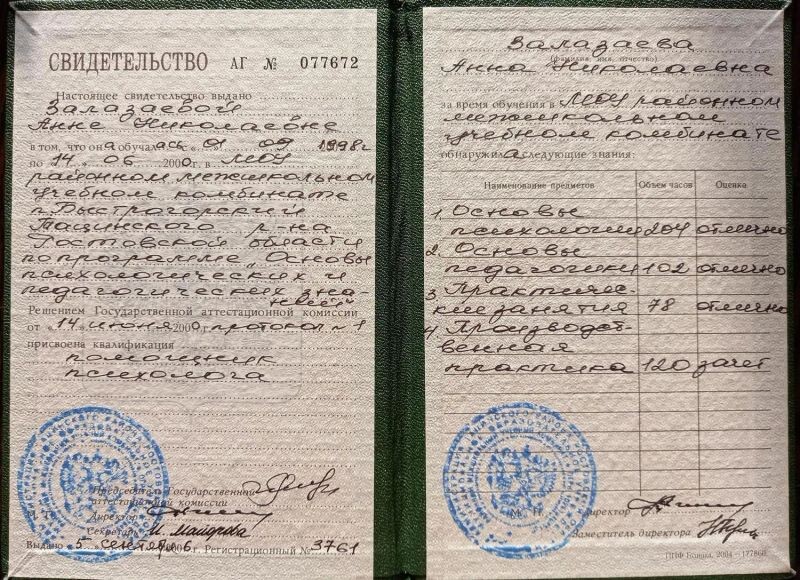 СВИДЕТЕЛЬСТВО АГ № 077672
Настоящее свидетельство выдано
Залазаевой
Анне Николаевне
в том, что она обучалась с «01» 09 1998г
по «14» 06 2000 г. в МОУ
районном межшкольном
учебном комбинате
п. Быстрогорский
Тацинского р-на
Ростовской области
по программе „Основы
психологических и
педагогических зна-
ний"
Решением Государственной аттестационной комиссии
от «14» июня 2000 г. протокол № 1
присвоена квалификация
помощник
психолога
Председатель Государственной
аттестационной комиссии
М. П. Директор
Секретарь И. Майорова
Выдано «5» сентября Регистрационный № 3761
Залазаева
(фамилия, имя, отчество)
Анна Николаевна
за время обучения в МОУ районном
межшкольном
учебном комбинате
обнаружила следующие знания:
Наименование предметов Объем часов Оценка
1. Основы
психологии 204 отлично
2. Основы
педагогики 102 отлично
3. Практичес-
кие занятия 78 отлично
4. Производст-
венная
практика 120 зачет
М. П. Директор
Заместитель директора